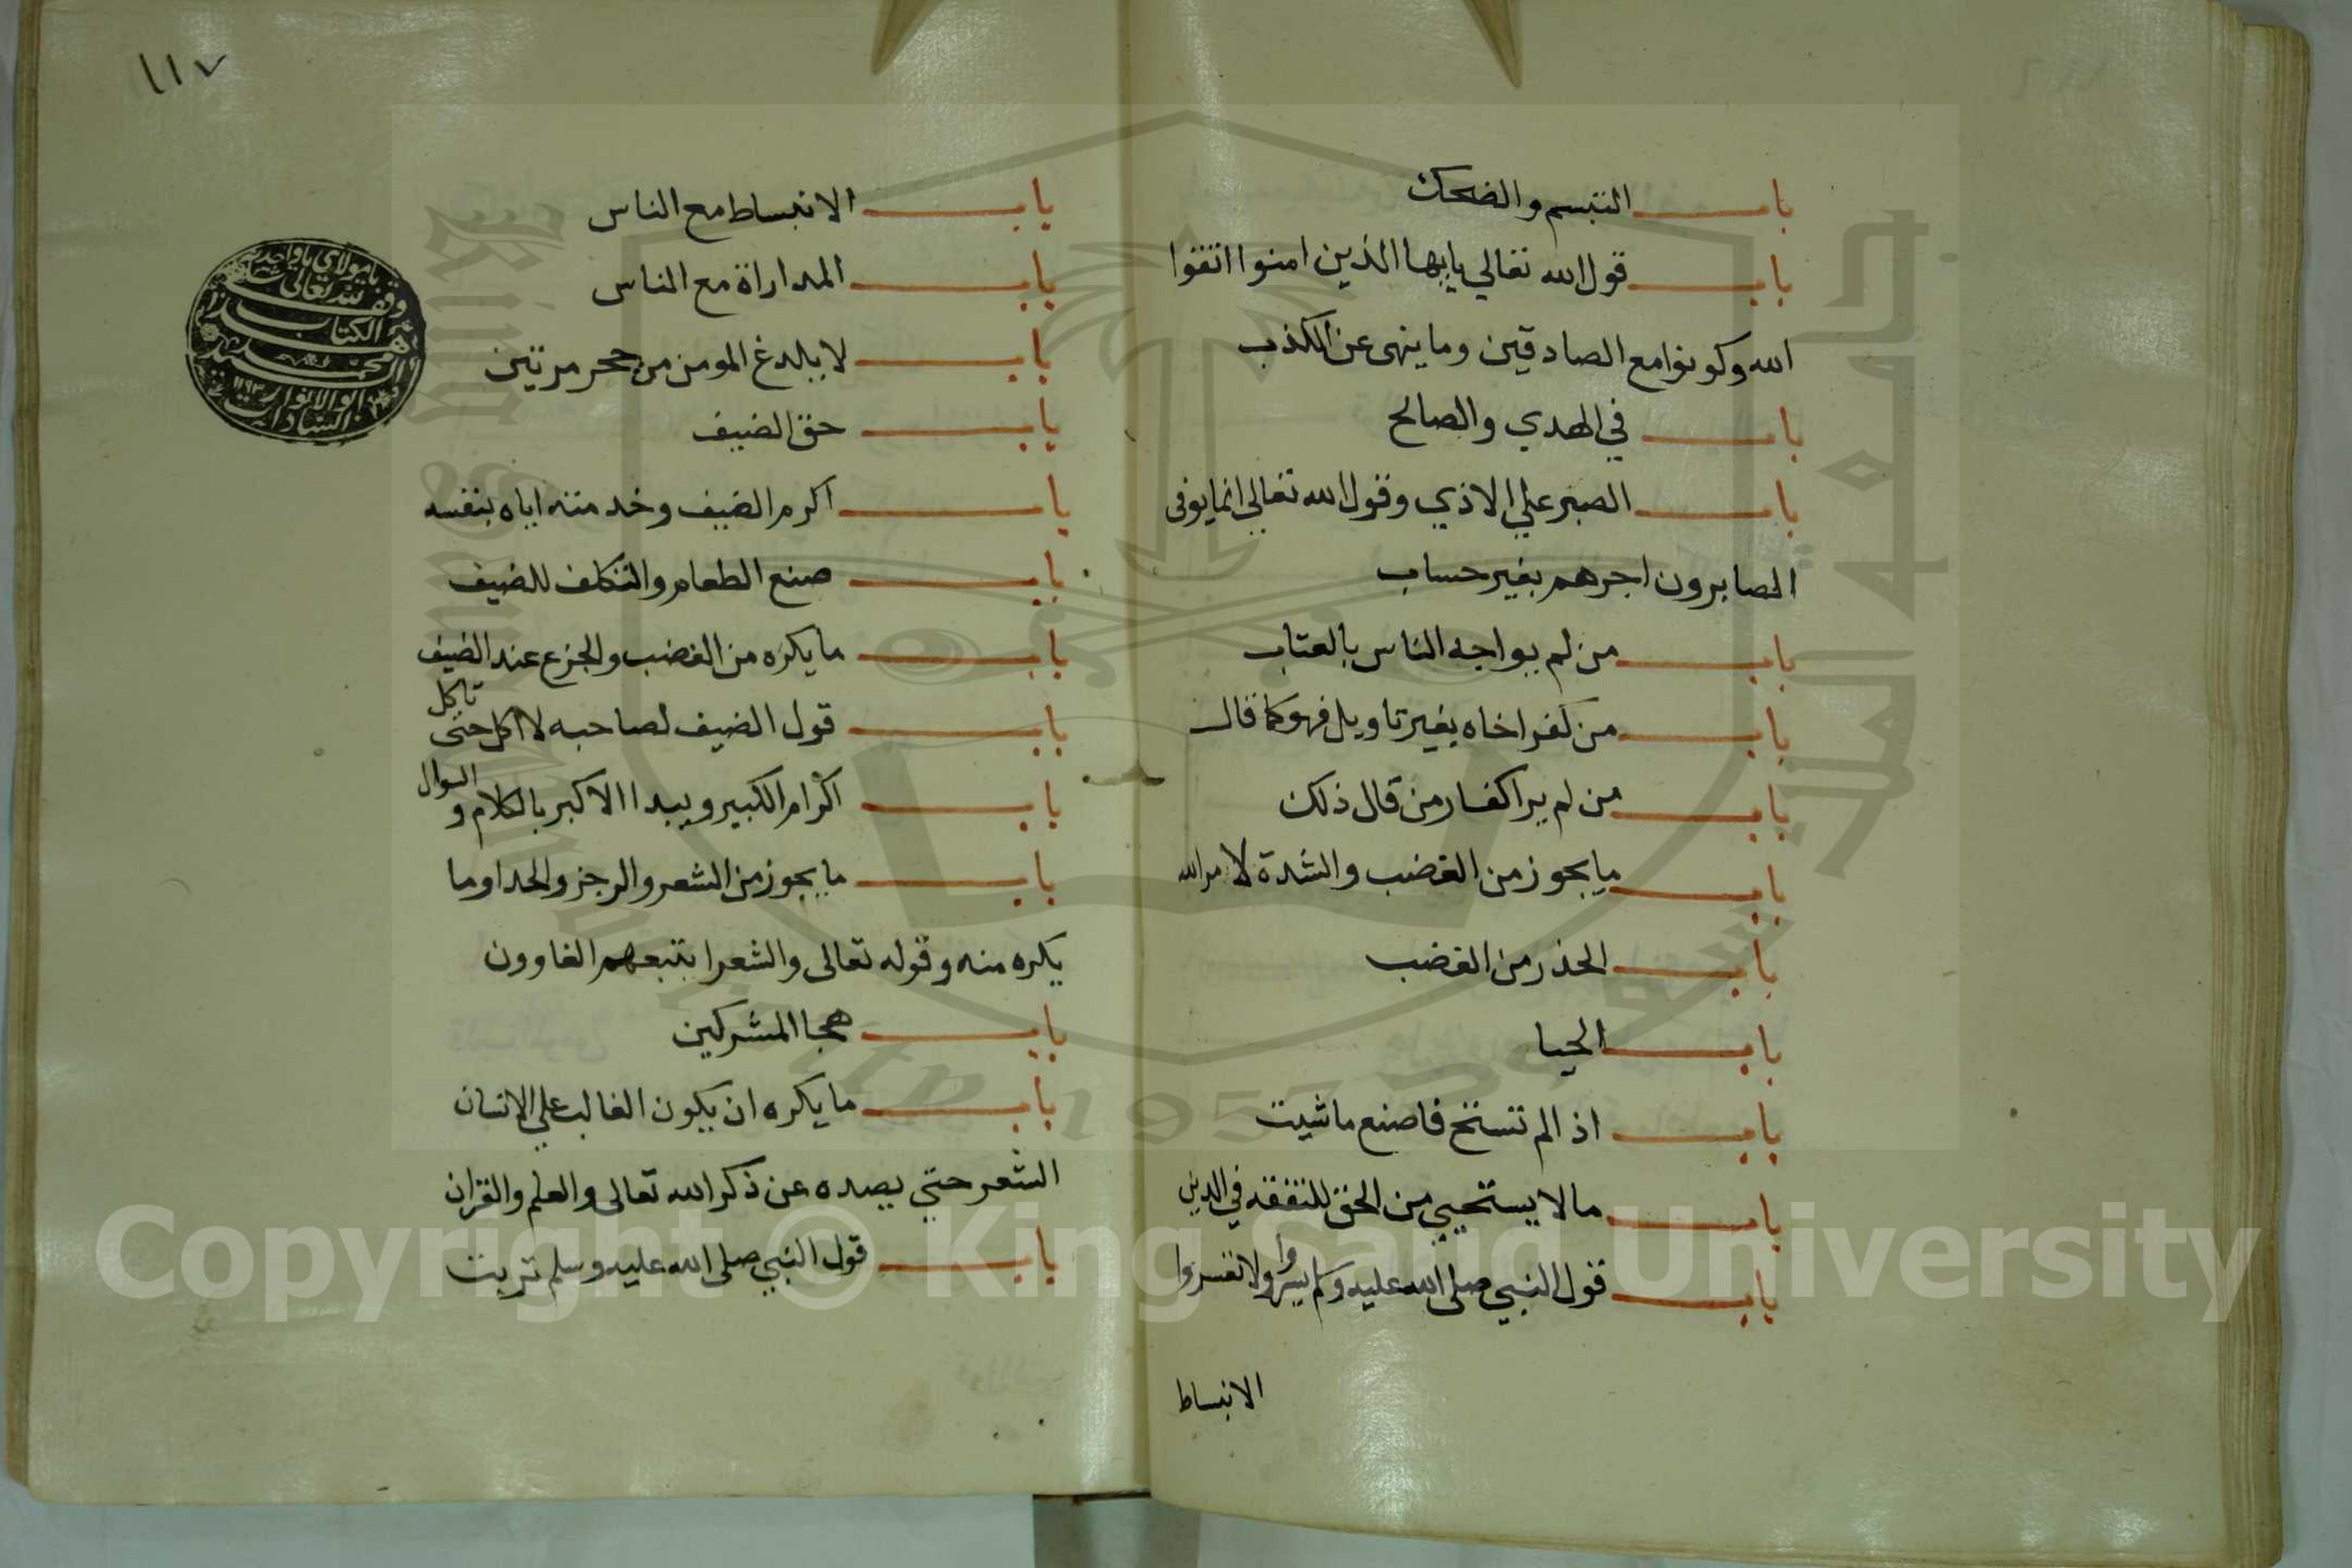 باب التبسم والضحك
باب قول الله تعالي يايها الذين امنوا اتقوا
الله وكونوا مع الصادقين وما ينهى عن الكذب
باب في الهدي والصالح
باب الصبر علي الاذي وقول الله تعالي انما يوفى
الصابرون اجرهم بغير حساب
باب من لم يواجه الناس بالعتاب
باب من كفر اخاه بغير تاويل فهو كما قال
باب من لم ير اكفار من قال ذلك
باب ما يجوز من الغضب والشدة لامر الله
باب الحذر من الغضب
باب الحيا
باب اذا لم تستح فاصنع ما شيت
باب ما لا يستحيي من الحق للتفقه في الدين
باب قول النبي صلى الله عليه وسلم يسروا ولا تعسروا
الانبساط
١١٧
باب الانبساط مع الناس
باب المداراة مع الناس
باب لا يلدغ المومن من جحر مرتين
باب حق الضيف
باب اكرم الضيف وخدمته اياه بنفسه
باب صنع الطعام والتكلف للضيف
باب ما يكره من الغضب والجزع عند الضيف
باب قول الضيف لصاحبه لا اكل حتى تاكل
باب اكرام الكبير ويبدا الاكبر بالكلام والسوال
باب ما يجوز من الشعر والرجز والحدا وما
يكره منه وقوله تعالى والشعرا يتبعهم الغاوون
باب هجا المشركين
باب ما يكره ان يكون الغالب علي الانسان
الشعر حتي يصده عن ذكر الله تعالى والعلم والقران
باب قول النبي صلى الله عليه وسلم تربت
وقف
لله تعالى
الكتاب
محمد
ابو الانوار
السادات
King Saud University
1957
جامعة الملك سعود
Copyright © King Saud University